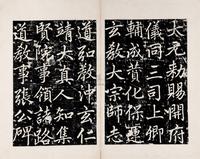 大元勑賜開府
儀同三司上卿
輔成賛化保運
玄教大宗師志
道弘教沖玄仁
靖大真人知集
賢院事領諸路
道教事張公碑